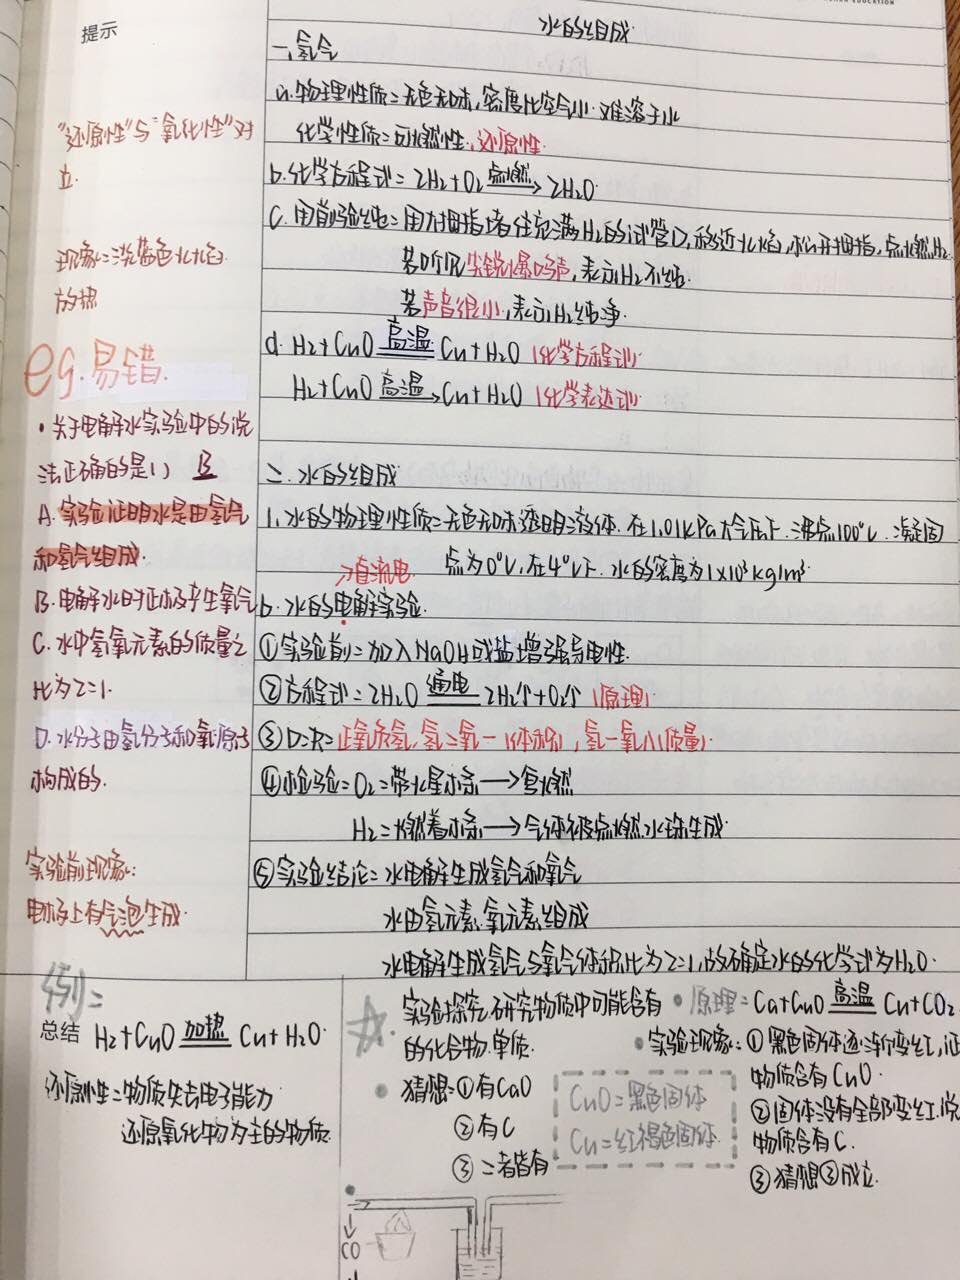 水的组成
提示
一、氢气
a.物理性质:无色无味,密度比空气小.难溶于水
化学性质:可燃性,还原性.
"还原性"与"氧化性"对
立.
b.化学方程式:2H₂+O₂ 点燃→ 2H₂O
c.用前验纯:用大拇指堵住充满H₂的试管口,移近火焰,松开拇指,点燃H₂
现象:淡蓝色火焰.
放热
若听见尖锐爆鸣声,表示H₂不纯.
若声音很小,表示H₂纯净.
d. H₂+CuO 高温 Cu+H₂O (化学方程式)
H₂+CuO 高温→ Cu+H₂O (化学表达式)
eg.易错.
·关于电解水实验中的说
法正确的是( ) B
A.实验证明水是由氢气
和氧气组成.
B.电解水时正极产生氧气
C.水中氢氧元素的质量之
比为2:1.
D.水分子由氢分子和氧原子
构成的.
二.水的组成
1.水的物理性质:无色无味透明液体.在1.01kPa大气压下.沸点100℃.凝固
点为0℃,在4℃下.水的密度为1×10³kg/m³
→直流电
b.水的电解实验.
①实验前:加入NaOH或盐增强导电性.
②方程式:2H₂O 通电 2H₂↑+O₂↑ (原理)
③正氧负氢,氢二氧一(体积),氢一氧八(质量)
④检验:O₂:带火星木条→复燃
H₂:燃着木条→气体被点燃.水珠生成.
实验前现象:
电极上有气泡生成.
⑤实验结论:水电解生成氢气和氧气
水由氢元素.氧元素组成
水电解生成氢气与氧气体积比为2:1,故确定水的化学式为H₂O.
例:
总结 H₂+CuO 加热 Cu+H₂O.
还原性:物质失去电子能力
还原氧化物为主的物质.
☆.实验探究.研究物质中可能含有
的化合物.单质.
·猜想:①有CuO
②有C
③二者皆有
CuO:黑色固体
Cu:红褐色固体.
·原理:C+CuO 高温 Cu+CO₂
·实验现象:①黑色固体逐渐变红,证
物质含有CuO.
②固体没有全部变红.说
物质含有C.
③猜想③成立.
CO